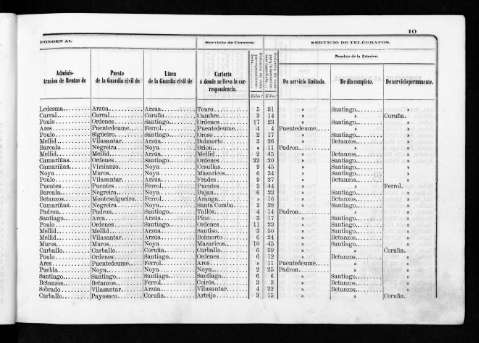 10
PONDEN AL
Servicio de Correos.
SERVICIO DE TELÉGRAFOS.
Nombre de la Estación.
Adminis-
tración de Rentas de
Puesto
de la Guardia civil de
Línea
de la Guardia civil de
Cartería
á donde se lleva la cor-
respondencia.
De servicio limitado.
De día completo.
De servicio permanente.
Ledesma Arzúa Arzúa Touro 5 21 » Santiago »
Carral Carral Coruña Cambre 3 14 » » Coruña
Poulo Ordenes Santiago Ordenes 17 23 » Santiago »
Ares Puentedeume Ferrol Puentedeume 4 4 Puentedeume » »
Poulo Sigüeiro Santiago Oroso 2 17 » Santiago »
Mellid Villasantar Arzúa Boimorto 3 26 » Betanzos »
Barcala Negreira Noya 11 Padron » »
Mellid Mellid Arzúa Mellid 2 45 » Betanzos »
Camariñas Ordenes Santiago Ordenes 22 20 » Santiago »
Camariñas Vimianzo Noya 2 45 » Santiago »
Noya Muros Noya Mazaricos 6 34 » Santiago »
Poulo Villasantar Arzúa Frades 9 27 » Betanzos »
Puentes Puentes Ferrol Puentes 3 44 » » Ferrol
Barcala Negreira Noya 6 22 » Santiago »
Betanzos Ferrol Aranga » 16 » Betanzos »
Camariñas Negreira Noya Santa Comba 3 28 » Santiago »
Padron Padron Santiago 4 14 Padron » »
Santiago Arzúa Arzúa Pino 3 17 » Santiago »
Poulo Ordenes Santiago Ordenes 11 23 » Santiago »
Mellid Mellid Arzúa 3 50 » Santiago »
Mellid Villasantar Arzúa Boimorto 6 24 » Betanzos »
Muros Muros Noya Mazaricos 10 45 » Santiago »
Carballo Carballo Coruña Carballo 6 29 » » Coruña
Poulo Ordenes Santiago Ordenes 6 12 » Betanzos »
Ares Puentedeume Ferrol Ares » 11 Puentedeume » »
Puebla Noya Noya Noya 2 25 Padron » »
Santiago Santiago Santiago Santiago 6 6 » Santiago »
Betanzos Betanzos Ferrol Coirós 3 3 » Betanzos »
Sobrado Villasantar Arzúa Villasantar 4 22 » Betanzos »
Carballo Payosaco Coruña Arteijo 3 15 » » Coruña